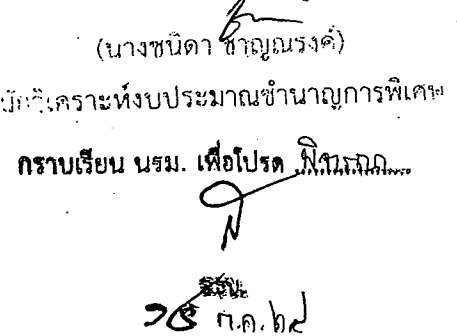 (นางชนิดา ชาญณรงค์)
นักวิเคราะห์งบประมาณชำนาญการพิเศษ
กราบเรียน นรม. เพื่อโปรด พิจารณา
ก.ค. ๖๔